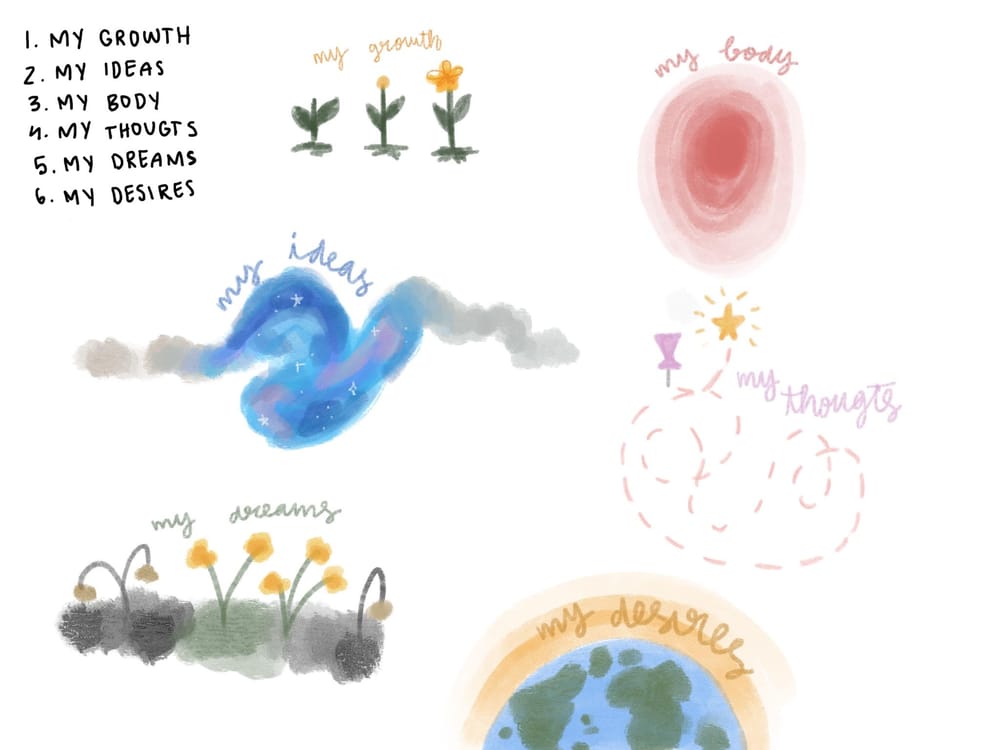 1. MY GROWTH
2. MY IDEAS
3. MY BODY
4. MY THOUGTS
5. MY DREAMS
6. MY DESIRES
my growth
my body
my ideas
my thougts
my dreams
my desires